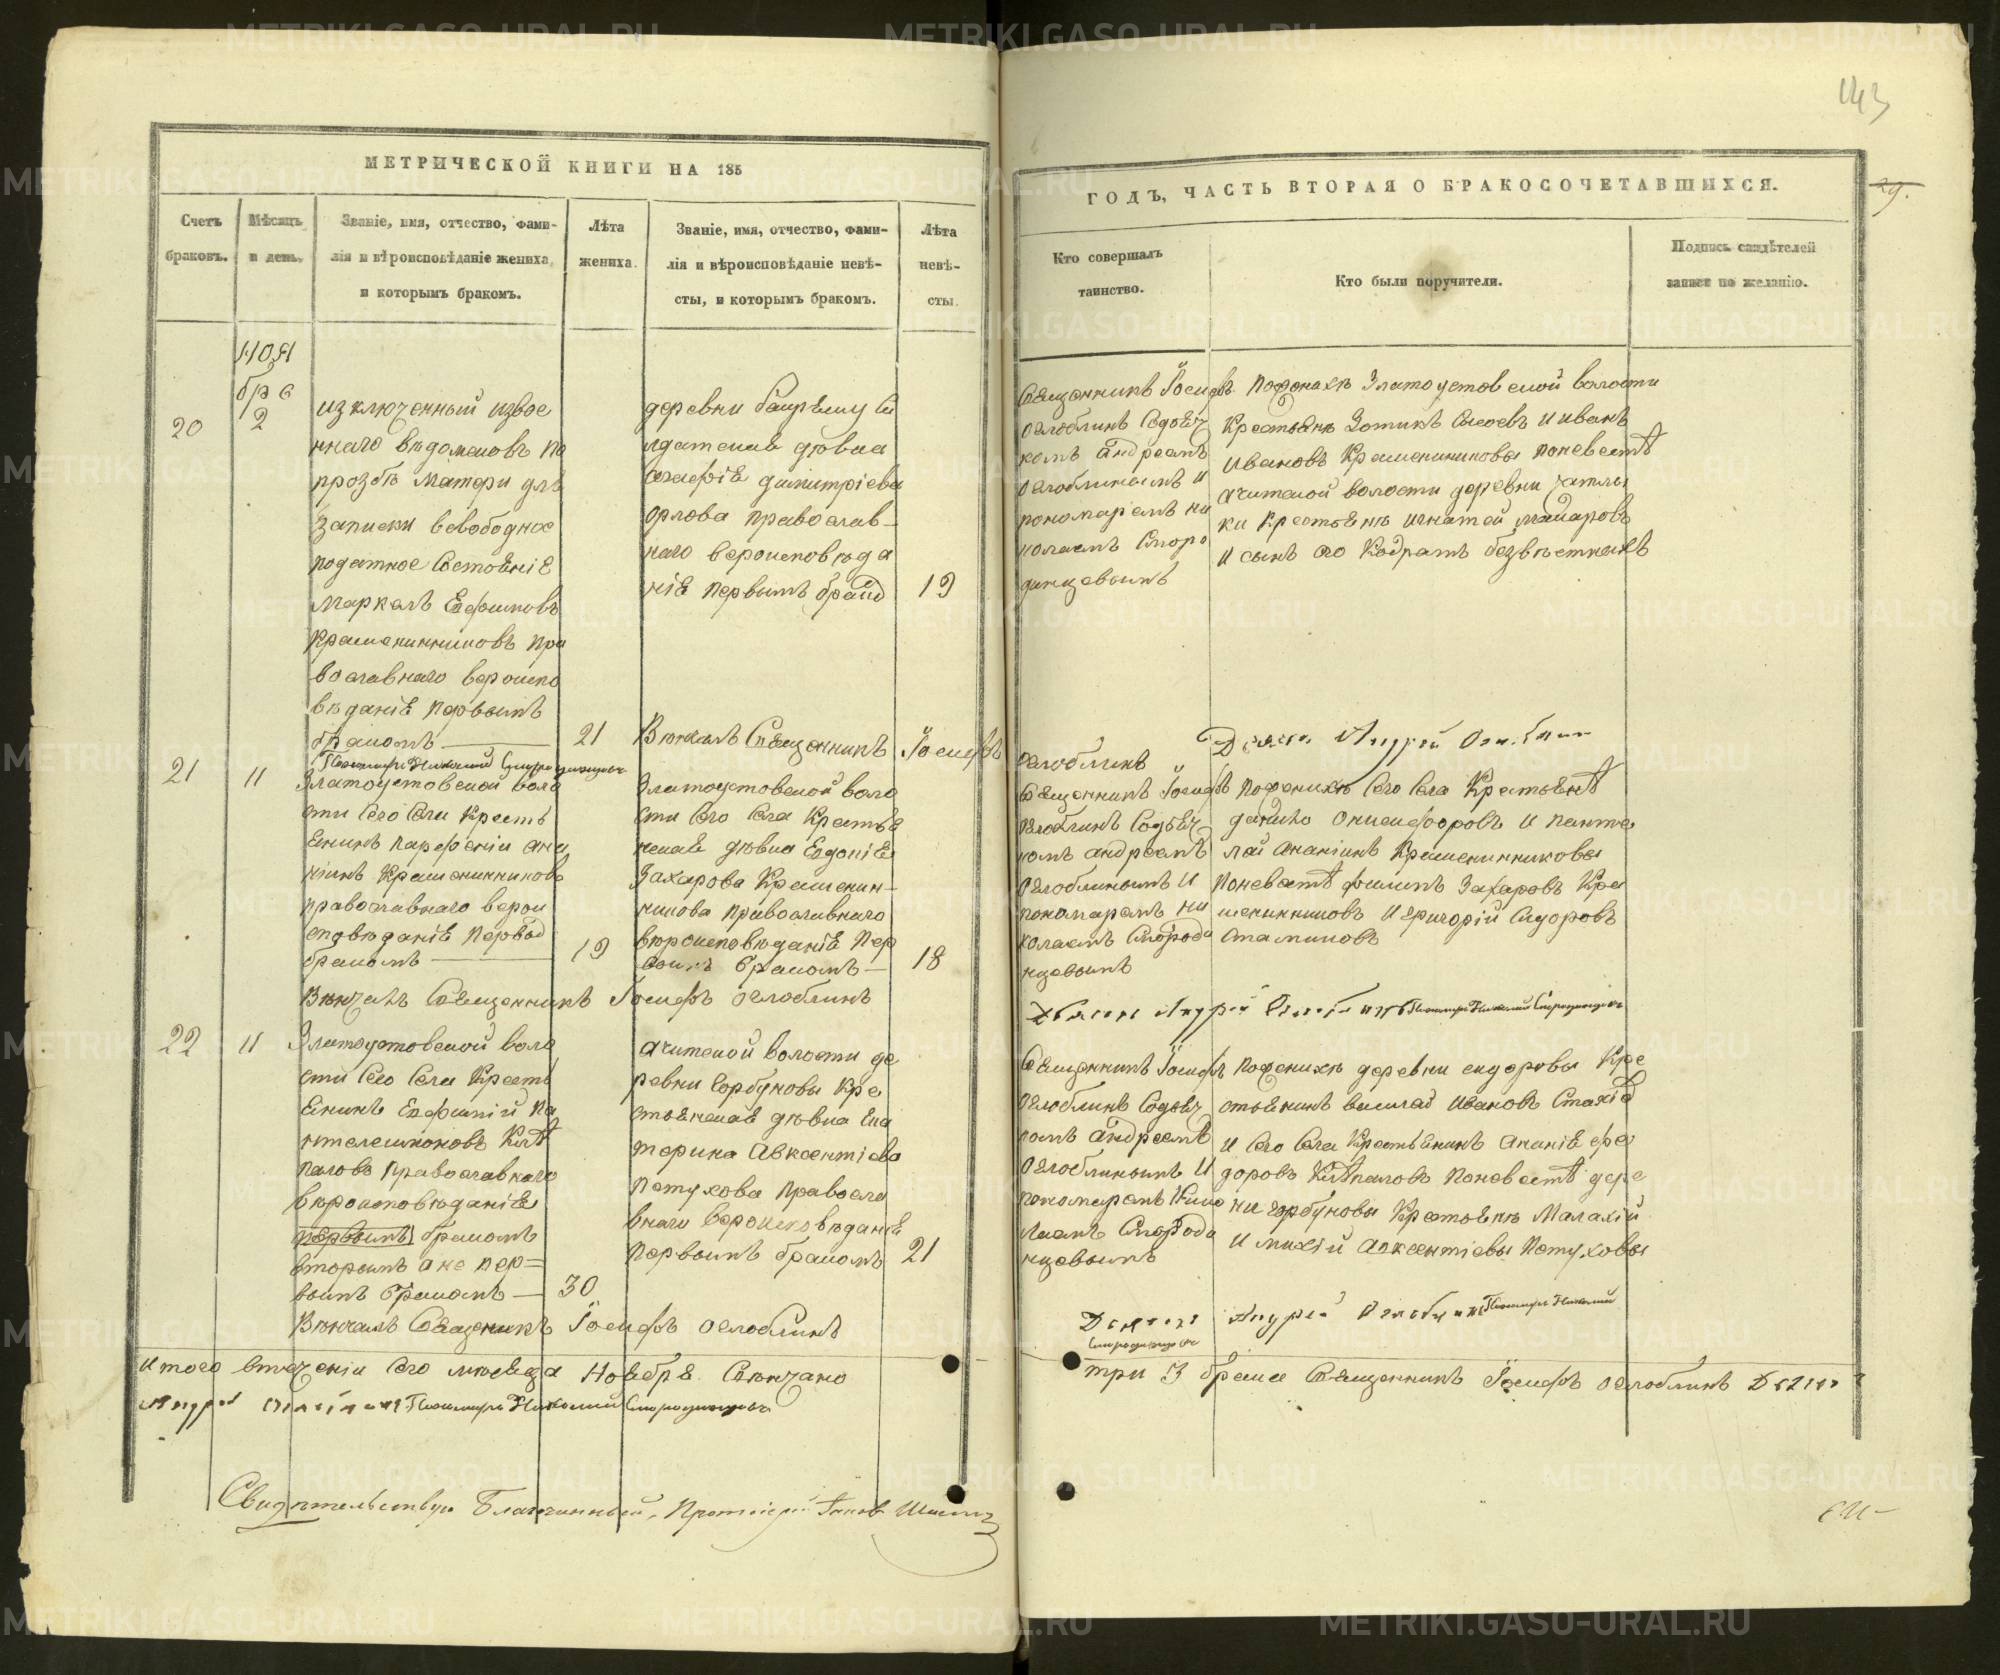 143
МЕТРИЧЕСКОЙ КНИГИ НА 185
ГОДЪ, ЧАСТЬ ВТОРАЯ О БРАКОСОЧЕТАВШИХСЯ.
29.
Счетъ
браковъ.
Мѣсяцъ
и день.
Званіе, имя, отчество, фами-
лія и вѣроисповѣданіе жениха
и которымъ бракомъ.
Лѣта
жениха.
Званіе, имя, отчество, фами-
лія и вѣроисповѣданіе невѣ-
сты, и которымъ бракомъ.
Лѣта
невѣ-
сты.
Кто совершалъ
таинство.
Кто были поручители.
Подпись свидѣтелей
записи по желанію.
ноя
бра
20
2
изключенный извое
ннаго ведомсковъ по
прозбѣ матери для
записки всвободное
податное Состоѣніе
Маркелъ Евфимовъ
Крашенинниковъ пра
вославнаго вероиспо
веданіе первымъ
бракомъ
21
деревни
лдатская девка
Агафіе димитріева
орлова православ-
наго вероисповеда
ніе первымъ
19
Священникъ Iосифъ
оглоблинъ Содьяч
комъ андреемъ
оглоблинымъ и
пономаремъ ни
колаемъ Сморо
динцовымъ
поженихе Златоустовской волости
Крестьяне Зотикъ Сысоевъ и иванъ
ивановъ Крашенинниковы поневесте
ачитской волости деревни
ки Крестьяне игнатей
и сынъ его Кодратъ
Венчалъ Священникъ Iосифъ
оглоблинъ
Дьячекъ Андрей Оглоблинъ
Пономарь Николай Смородинцовъ
21
11
Златоустовской воло
сти Сего Села Кресть
енинъ парфеніи ана
ніинъ Крашенинниковъ
православнаго верои
споведаніе
бракомъ
19
Златоустовской воло
сти Сего Села Крестье
нская девка Евдокіе
Захарова Крашенин-
никова православнаго
вероисповеданіе пер
вымъ бракомъ
18
Священникъ Iосифъ
оглоблинъ Содьяч
комъ андреемъ
оглоблинымъ и
пономаремъ ни
колаемъ Смороди
нцовымъ
поженихе Сего Села Крестьяне
данило онисифоровъ и панте
лай ананіинъ Крашенинниковы
поневесте филипъ Захаровъ Кра
шенинниковъ и григорій Сидоровъ
Стаминовъ
Венчалъ Священникъ Iосифъ оглоблинъ
Дьячекъ Андрей Оглоблинъ Пономарь Николай Смородинцовъ
22
11
Златоустовской воло
сти Сего Села Кресть
енинъ Евфимій па
нтелеимоновъ
паловъ православнаго
вероисповеданіе
первымъ бракомъ
вторымъ а не пер=
вымъ бракомъ
30
ачитской волости де
ревни горбуновы Кре
стьенская девка Ека
терина Авксентіева
петухова правосла
внаго вероисповеданіе
первымъ бракомъ
21
Священникъ Iосифъ
оглоблинъ Содьяч
комъ андреемъ
оглоблинымъ и
пономаремъ Нико
лаемъ Смороди
нцовымъ
поженихе деревни сидоровы Кре
стьенинъ василей ивановъ
и Сего Села Крестьенинъ ананіе фе
доровъ поневесте дере
вни горбуновы Крестьяне Малахій
и михіи авксентіевы петуховы
Венчалъ Священникъ Iосифъ оглоблинъ
Дьячекъ Андрей Оглоблинъ Пономарь Николай
Смородинцовъ
итого втеченіи Сего месеца Ноебре Свенчано
три 3 брака Священникъ Iосифъ оглоблинъ Дьячекъ
Андрей Оглоблинъ Пономарь Николай Смородинцовъ
Свидѣтельствую Благочинный, Протоіерей Iаковъ
METRIKI.GASO-URAL.RU